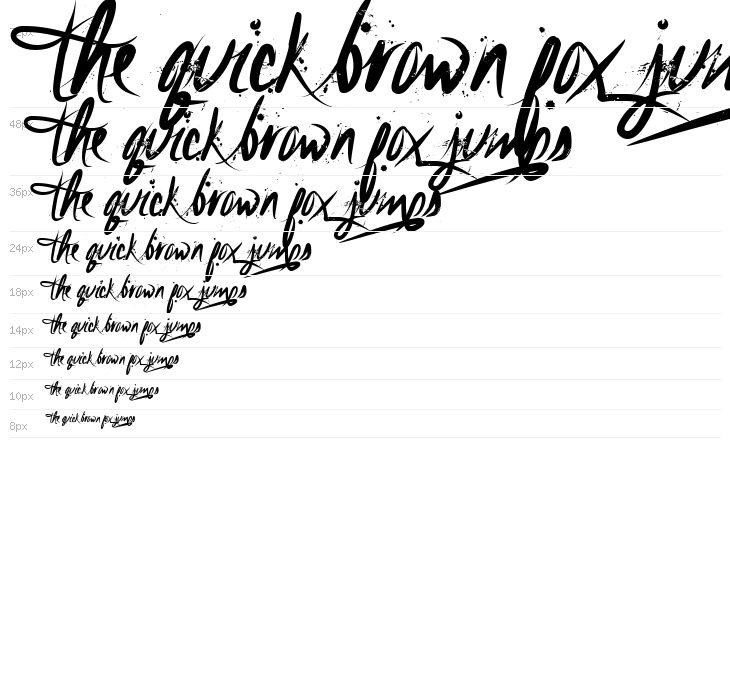 the quick brown fox jum
48px the quick brown fox jumps
36px the quick brown fox jumps
24px the quick brown fox jumps
18px the quick brown fox jumps
14px the quick brown fox jumps
12px the quick brown fox jumps
10px the quick brown fox jumps
8px the quick brown fox jumps